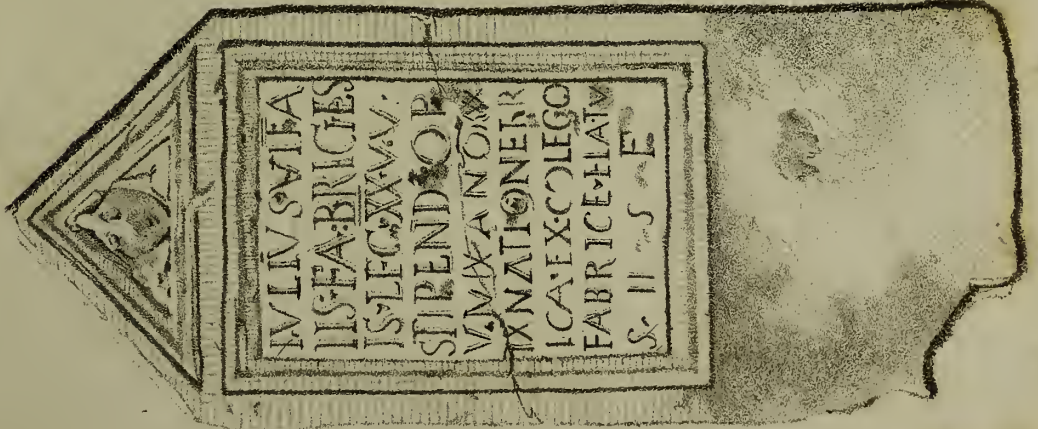 IVLIVS·VITA
LIS·FA·BRICIES
IS·LEG·XX·V·V·
STIPEND·OR
V·M·IX·ANOR·XX
IX·NATIONE·BE
LGA·EX·COLEGO
FABRICE·ELATV
S· H S E